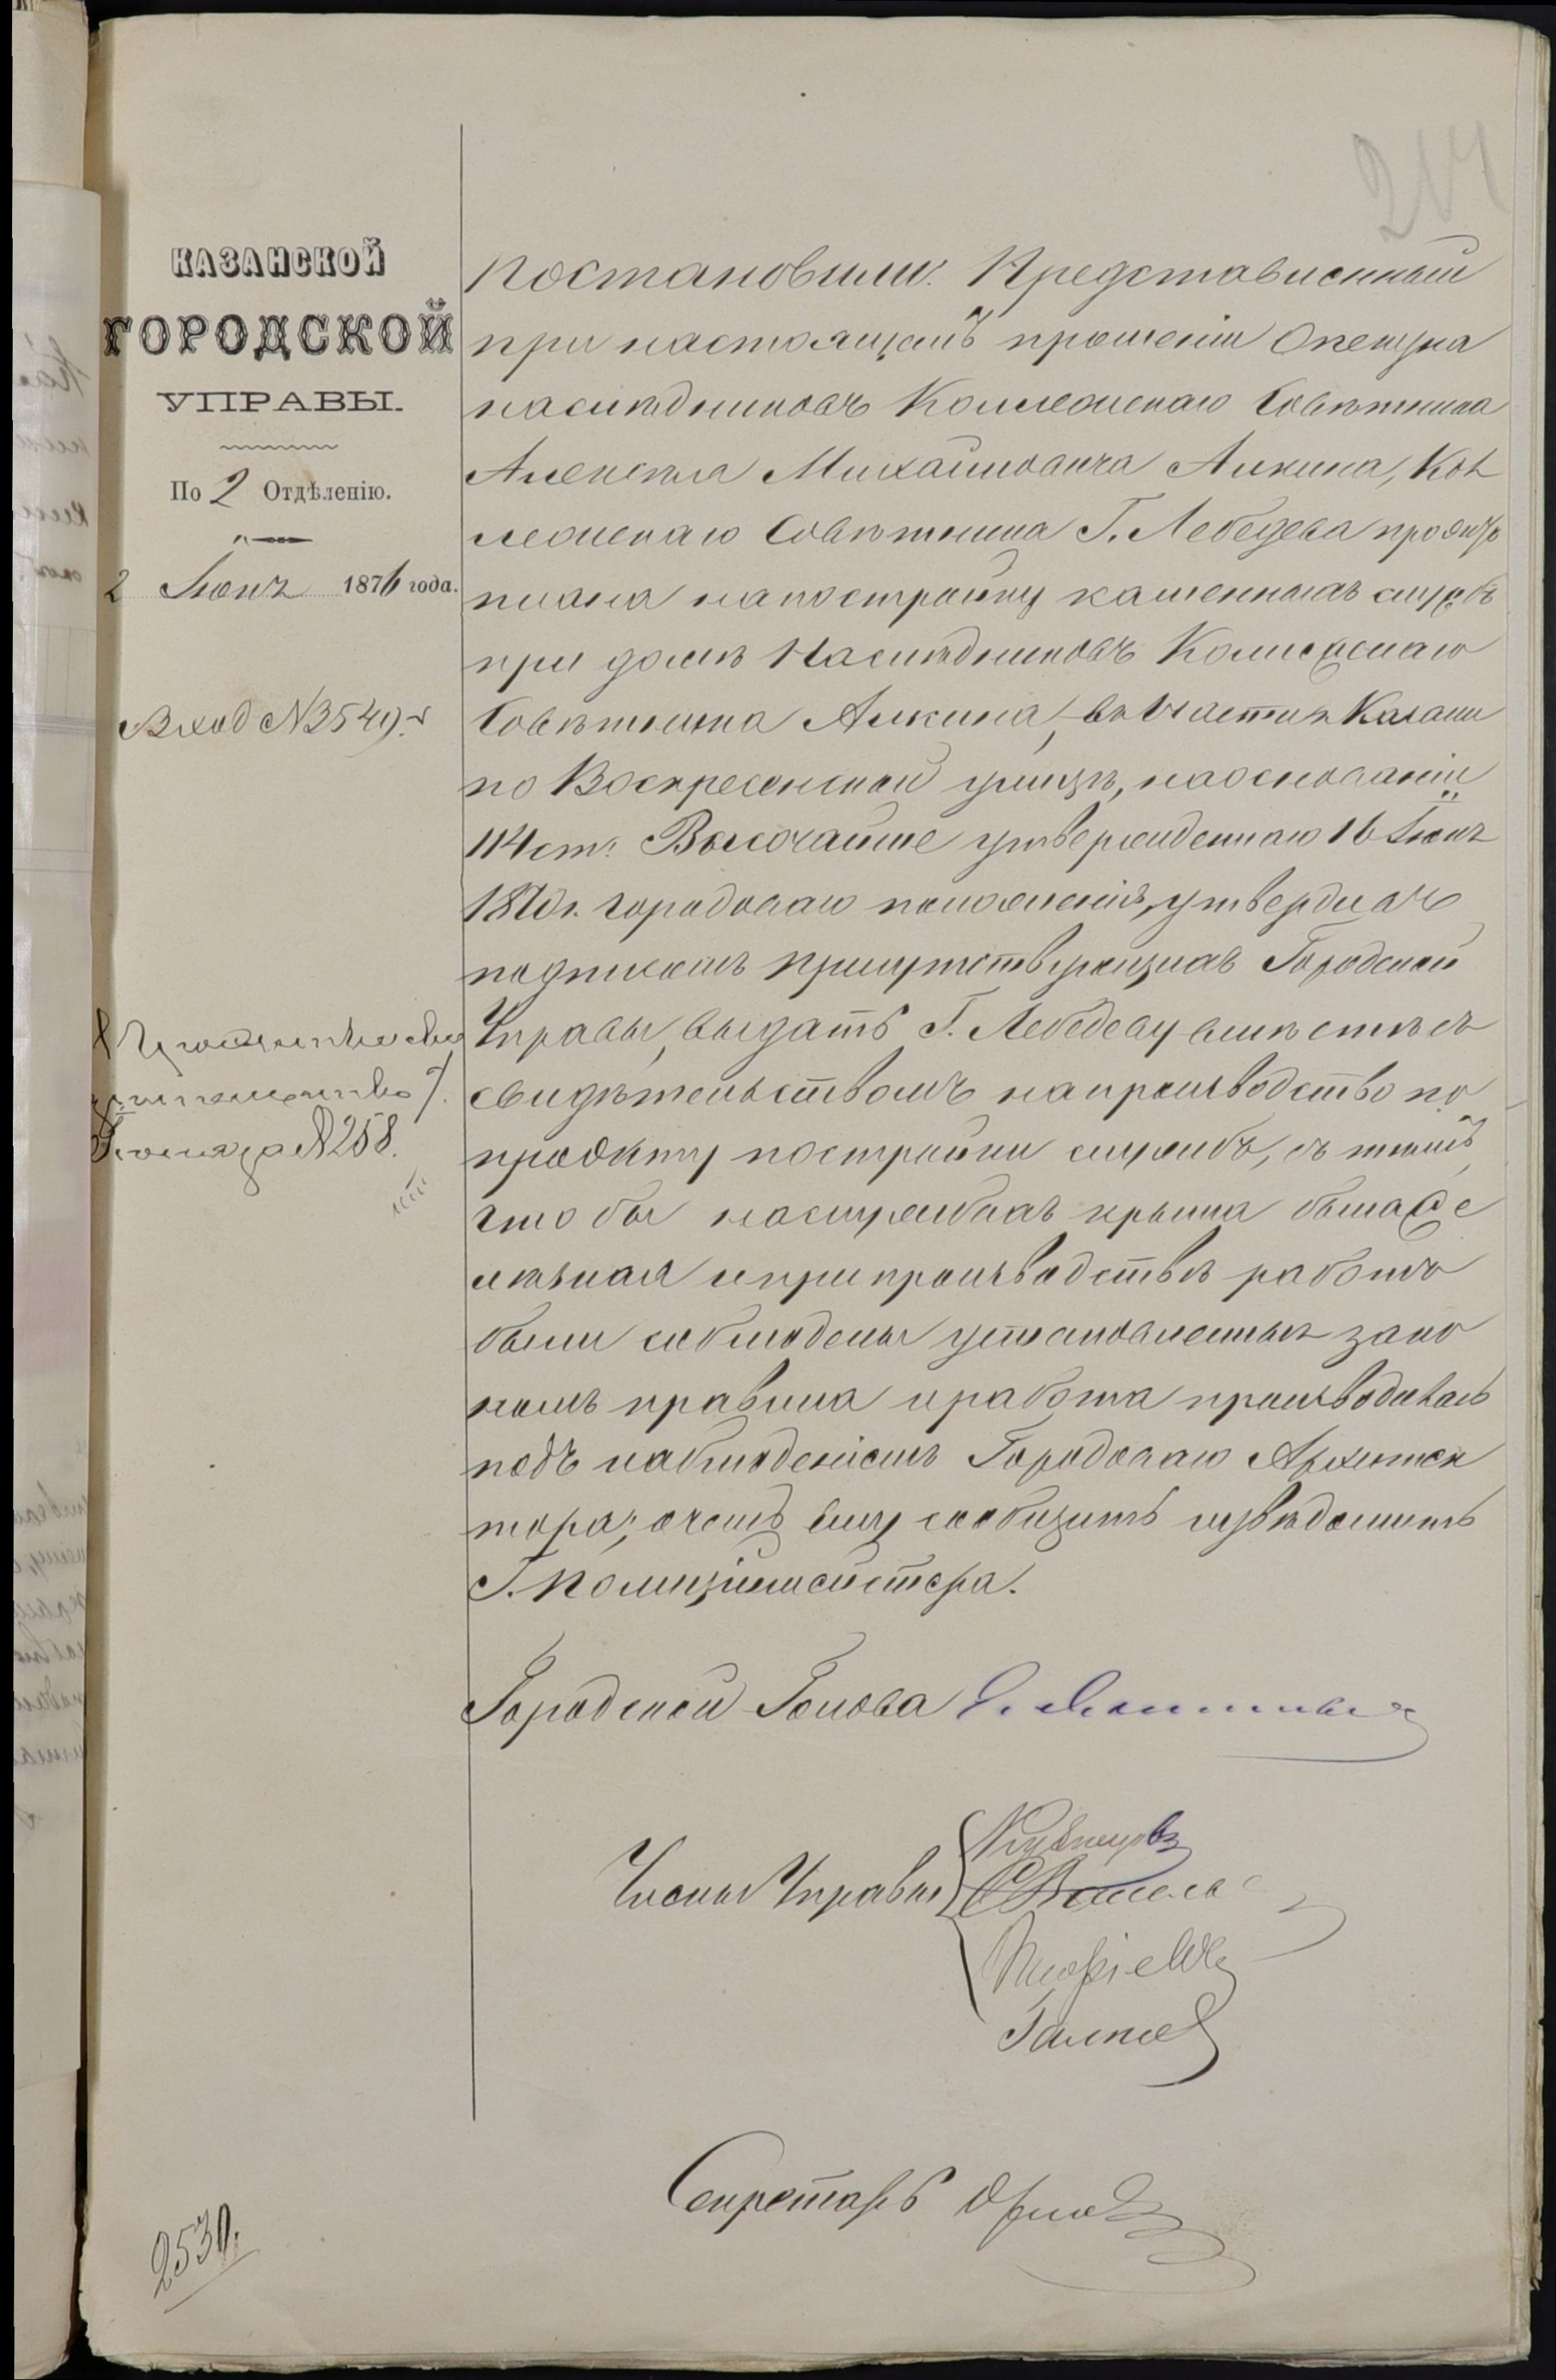 КАЗАНСКОЙ
ГОРОДСКОЙ
УПРАВЫ.
По 2 Отдѣленію.
2 Іюня 1876 года.
Вход № 3549.
№ 258.
2530.
Постановили: Представленный
при настоящемъ прошеніи Опекуна
наслѣдниковъ Коллежскаго Совѣтника
Алексѣя Михайловича Алкина, Кол
лежскаго Совѣтника Г. Лебедева проэктъ
плана на постройку каменныхъ службъ
при домѣ Наслѣдниковъ Коллежскаго
Совѣтника Алкина, въ 1 части г. Казани
по Воскресенской улицѣ, на основаніи
114 ст. Высочайше утвержденнаго 16 Іюня
1870 г. городоваго положенія, утвердивъ
подписомъ присутствующихъ Городской
Управы, выдать Г. Лебедеву вмѣстѣ съ
свидѣтельствомъ на производство по
проэкту постройки службъ, съ тѣмъ,
что бы на службахъ крыша была же
лѣзная и при производствѣ работъ
были соблюдены установленныя зако
номъ правила и работа производилась
подъ наблюденіемъ Городоваго Архитек
тора; о чемъ ему сообщить и увѣдомить
Г. Полицiймейстера.
Городской Голова
Члены Управы
Кузнецовъ
Секретарь Орловъ